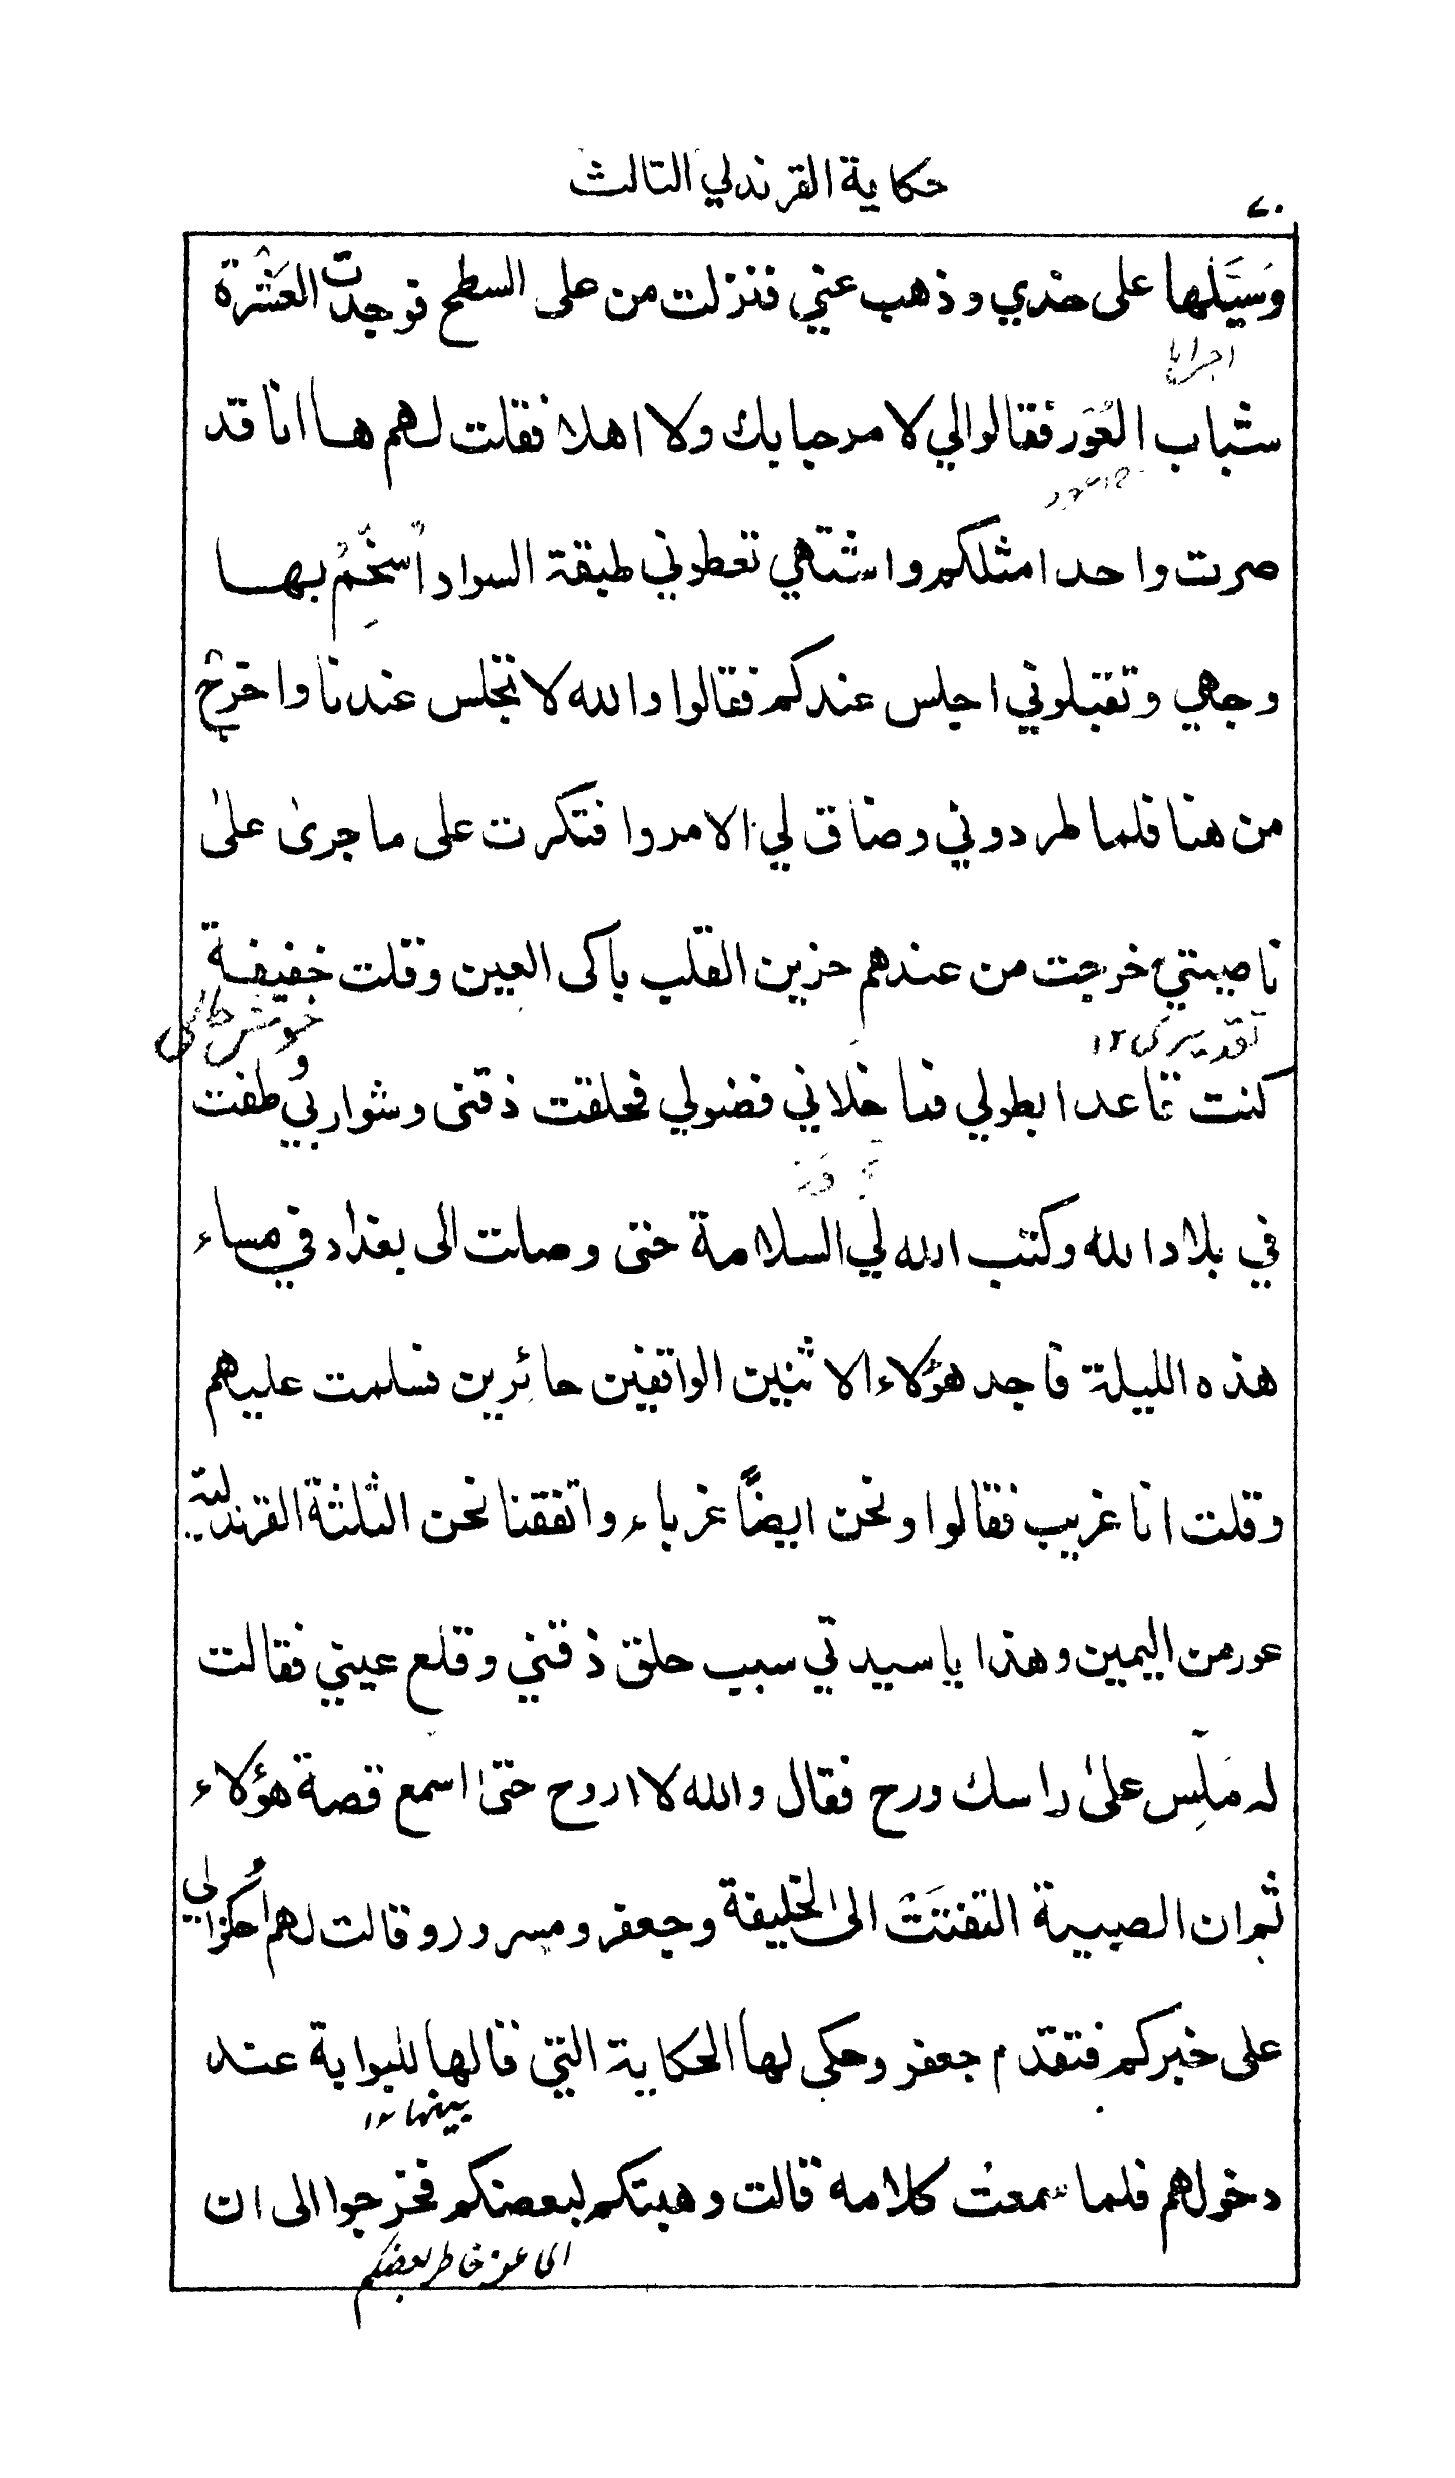 حكاية القرندلي الثالث
٧٠
وَسَيَّلها على خدي وذهب عني فنزلت من على السطح فوجدت العَشْرة
اجراها
شباب العُوَر فقالوا لي لا مرحبا بك ولا اهلا فقلت لهم ها انا قد
صرت واحد امثلكم واشتهي تعطوني طبقة السواد أُسخِّمُ بها
وجهي وتقبلوني اجلس عندكم فقالوا والله لا تجلس عندنا واخرج
من هنا فلما طردوني وضاق لي الامر وافتكرت على ما جرىٰ علىٰ
ناصيتي خرجت من عندهم حزين القلب باكى العين وقلت خفيفة
تقديري ١٢
كنت قاعدا بطولي فما خلاني فضولي فحلقت ذقنى وشواربي وطفت
في بلاد الله وكتب الله لي السلامة حتى وصلت الى بغداد في مساء
هذه الليلة فاجد هؤلاء الاثنين الواقفين حائرين فسلمت عليهم
وقلت انا غريب فقالوا ونحن ايضًا غرباء واتفقنا نحن الثلثة القرندلية
عور من اليمين وهذا يا سيدتي سبب حلق ذقني وقلع عيني فقالت
له مَلِّس علىٰ راسك ورح فقال والله لا اروح حتىٰ اسمع قصة هؤلاء
ثم ان الصبية التفتَتْ الىٰ الخليفة وجعفر ومسرور وقالت لهم احكوا لي
على خبركم فتقدم جعفر وحكى لها الحكاية التي قالها للبوابة عند
بينها ١٢
دخولهم فلما سمعت كلامه قالت وهبتكم لبعضكم فخرجوا الى ان
خاطر بعضكم